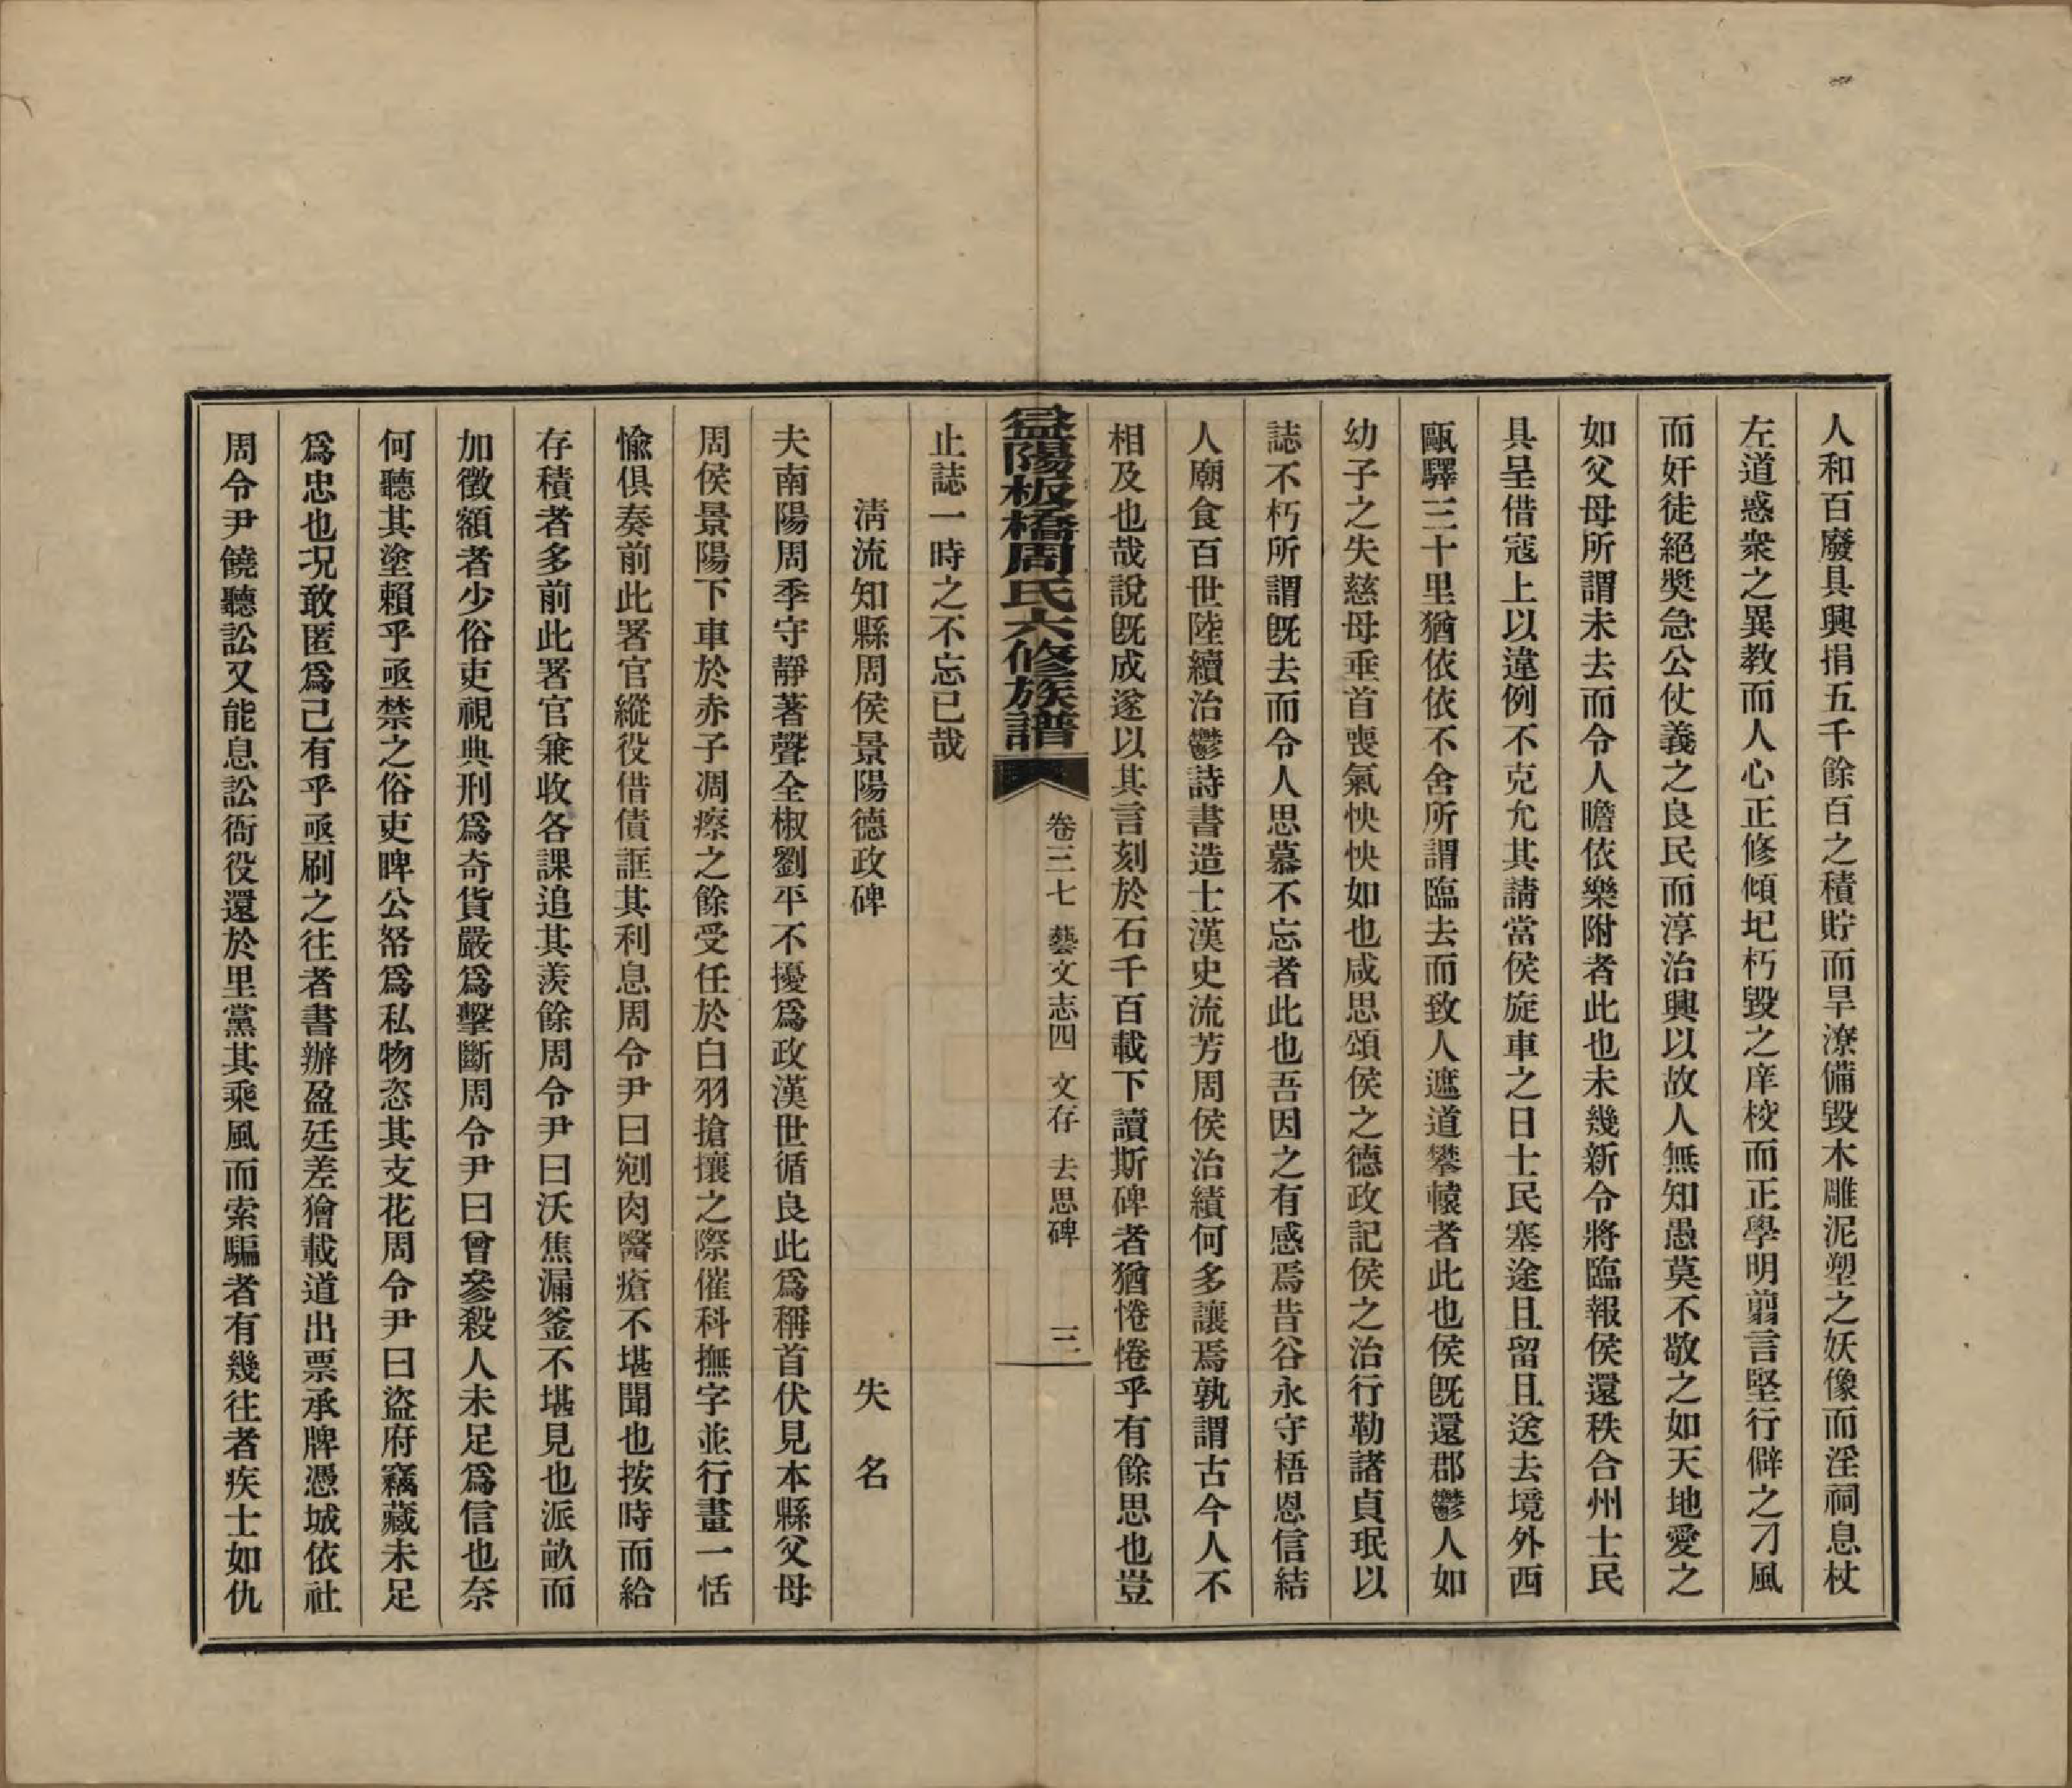 人和百廢具興捐五千餘百之積貯而旱潦備毀木雕泥塑之妖像而淫祠息杖
左道惑衆之異教而人心正修傾圮朽毀之庠校而正學明翦言堅行僻之刁風
而奸徒絕奬急公仗義之良民而淳治興以故人無知愚莫不敬之如天地愛之
如父母所謂未去而令人瞻依樂附者此也未幾新令將臨報侯還秩合州士民
具呈借寇上以違例不克允其請當侯旋車之日士民塞途且留且送去境外西
甌驛三十里猶依依不舍所謂臨去而致人遮道攀轅者此也侯既還郡鬱人如
幼子之失慈母垂首喪氣怏怏如也咸思頌侯之德政記侯之治行勒諸貞珉以
誌不朽所謂既去而令人思慕不忘者此也吾因之有感焉昔谷永守梧恩信結
人廟食百世陸續治鬱詩書造士漢史流芳周侯治績何多讓焉孰謂古今人不
相及也哉說既成遂以其言刻於石千百載下讀斯碑者猶惓惓乎有餘思也豈
益陽板橋周氏六修族譜 卷三七 藝文志四 文存 去思碑 三
止誌一時之不忘已哉
清流知縣周侯景陽德政碑 失名
夫南陽周季守靜著聲全椒劉平不擾爲政漢世循良此爲稱首伏見本縣父母
周侯景陽下車於赤子凋瘵之餘受任於白羽搶攘之際催科撫字並行畫一恬
愉俱奏前此署官縱役借債誆其利息周令尹曰剜肉醫瘡不堪聞也按時而給
存積者多前此署官兼收各課追其羨餘周令尹曰沃焦漏釜不堪見也派畝而
加徵額者少俗吏視典刑爲奇貨嚴爲擊斷周令尹曰曾參殺人未足爲信也奈
何聽其塗賴乎亟禁之俗吏睥公帑爲私物恣其支花周令尹曰盜府竊藏未足
爲忠也況敢匿爲己有乎亟刷之往者書辦盈廷差獪載道出票承牌憑城依社
周令尹饒聽訟又能息訟衙役還於里黨其乘風而索騙者有幾往者疾士如仇